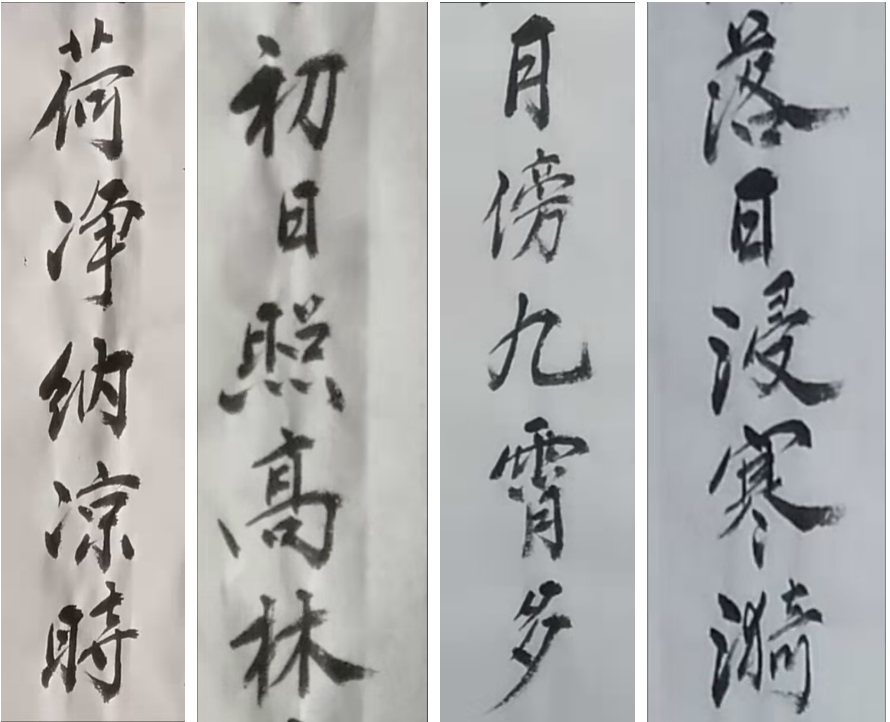 落日浸寒漪
月傍九霄多
初日照高林
荷净纳凉時